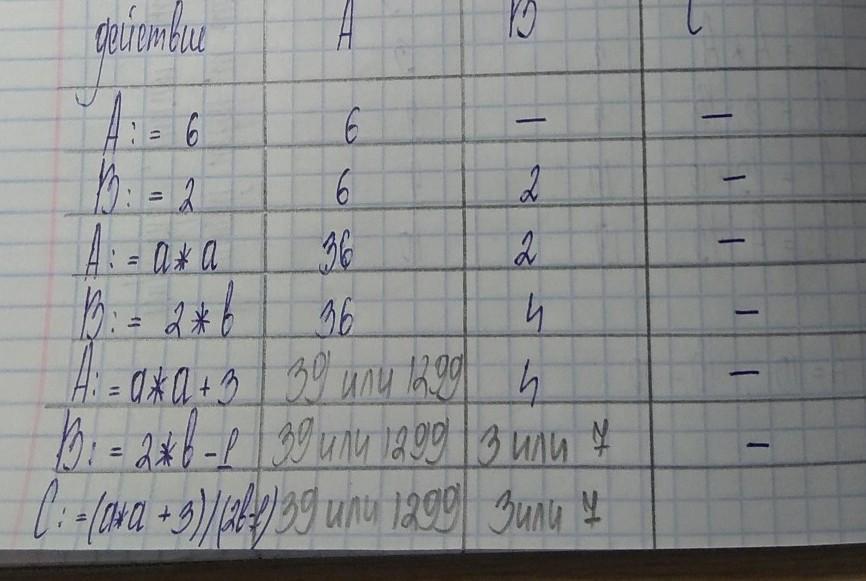 действие A B C
A := 6 6 — —
B := 2 6 2 —
A := a * a 36 2 —
B := 2 * b 36 4 —
A := a * a + 3 39 или 1299 4 —
B := 2 * b - 1 39 или 1299 3 или 7 —
C := (a*a + 3) / (2b-1) 39 или 1299 3 или 7